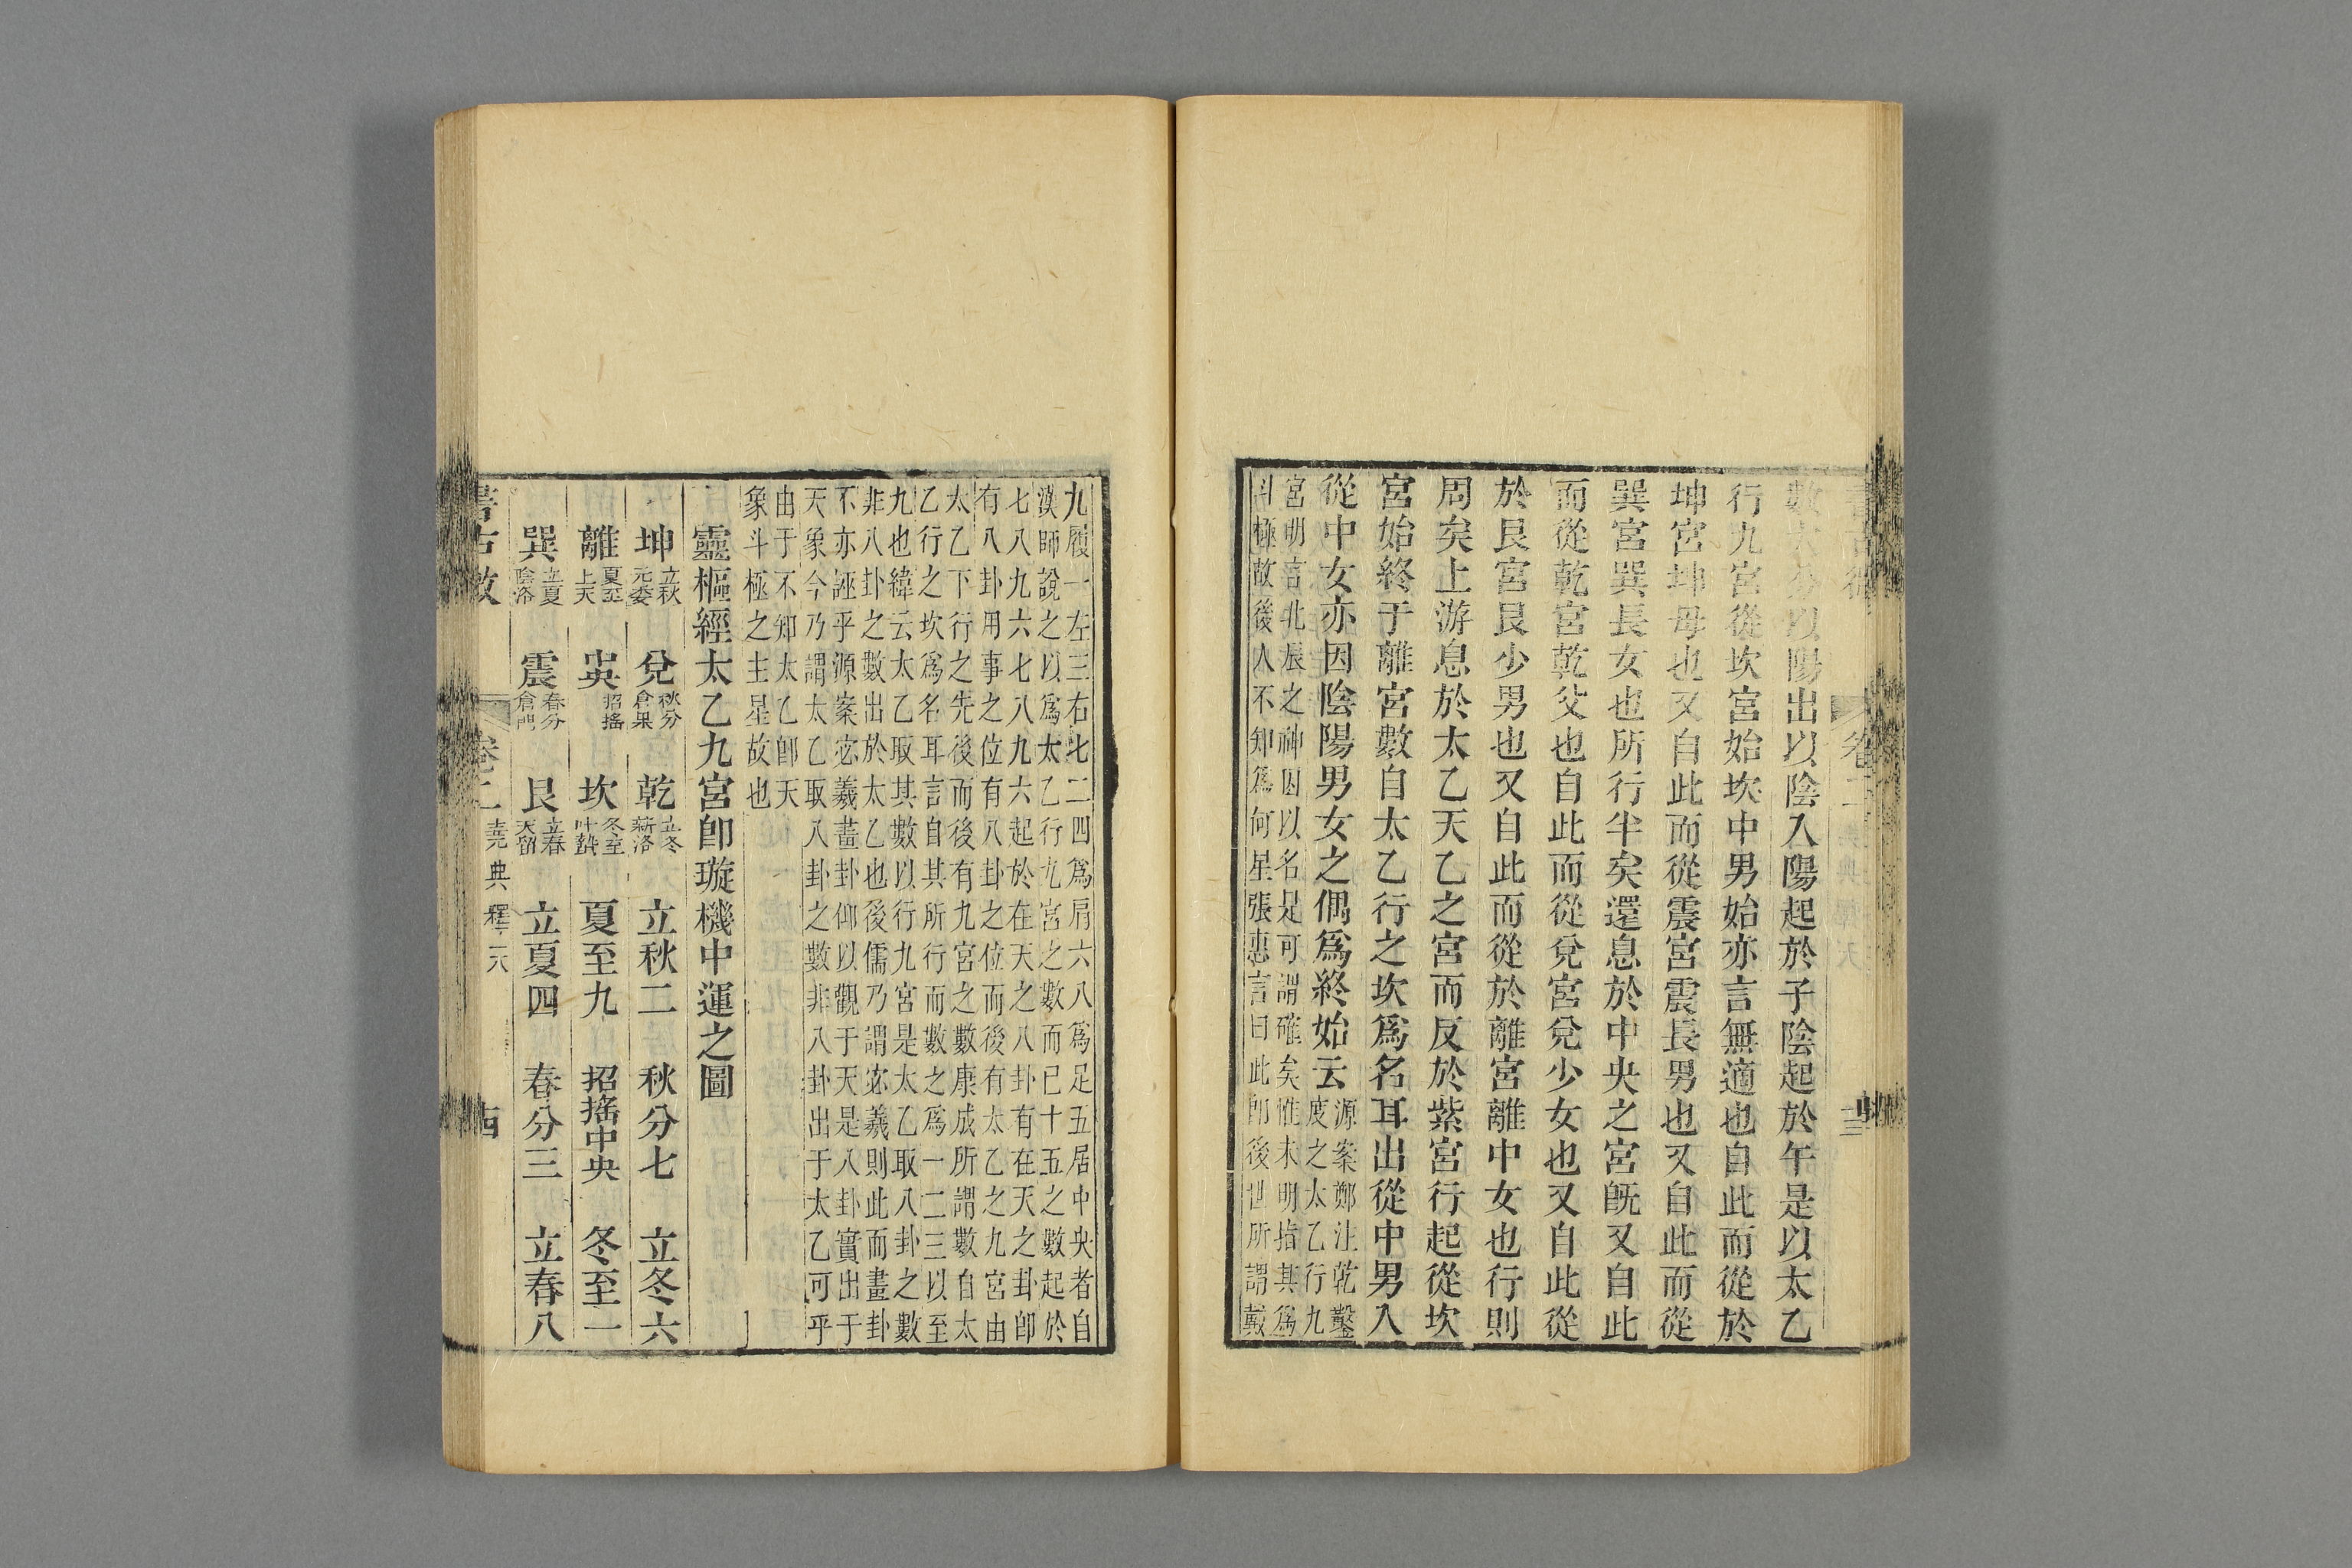 數大分以陽出以陰入陽起於子陰起於午是以太乙
行九宮從坎宮始坎中男始亦言無適也自此而從於
坤宮坤母也又自此而從震宮震長男也又自此而從
巽宮巽長女也所行半矣還息於中央之宮旣又自此
而從乾宮乾父也自此而從兌宮兌少女也又自此從
於艮宮艮少男也又自此而從於離宮離中女也行則
周矣上游息於太乙天乙之宮而反於紫宮行起從坎
宮始終于離宮數自太乙行之坎爲名耳出從中男入
從中女亦因陰陽男女之偶爲終始云
源案鄭注乾鑿
度之太乙行九
宮明言北辰之神因以名是可謂確矣惟未明指其爲
斗極故後人不知爲何星張惠言曰此卽後世所謂戴
九履一左三右七二四爲肩六八爲足五居中央者自
漢師說之以爲太乙行九宮之數而已十五之數起於
七八九六七八九六起於在天之八卦有在天之卦卽
有八卦用事之位有八卦之位而後有太乙之九宮由
太乙下行之先後而後有九宮之數康成所謂數自太
乙行之坎爲名耳言自其所行而數之爲一二三以至
九也緯云太乙取其數以行九宮是太乙取八卦之數
非八卦之數出於太乙也後儒乃謂宓羲則此而畫卦
不亦誣乎源案宓羲畫卦仰以觀于天是八卦實出于
天象今乃謂太乙取八卦之數非八卦出于太乙可乎
由于不知太乙卽天
象斗極之主星故也
靈樞經太乙九宮卽璇機中運之圖
坤 立秋 元委 兌 秋分 倉果 乾 立冬 新洛 立秋二 秋分七 立冬六
離 夏至 上天 中央 招搖 坎 冬至 叶蟄 夏至九 招搖中央 冬至一
巽 立夏 陰洛 震 春分 倉門 艮 立春 天留 立夏四 春分三 立春八
書古微 卷二 堯典釋天